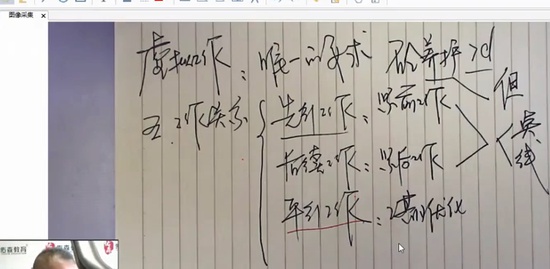 图像采集
虚拟工作：唯一的要求 砼养护7d
五、工作关系 但
先行工作：紧前工作
后续工作：紧后工作
实线
平行工作：工期优化
教育